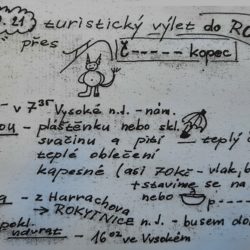 . 21 turistický výlet do RO
přes Č----- kopec
v 7³⁵ Vysoké n.J. - nám.
OU - pláštěnku nebo skl.
svačinu a pití teplý č
teplé oblečení
kapesné (asi 70kč - vlak, b
+ stavíme se na
nebo
z Harrachova
→ ROKYTNICE n.J. - busem do
návrat - 16⁰² ve Vysokém